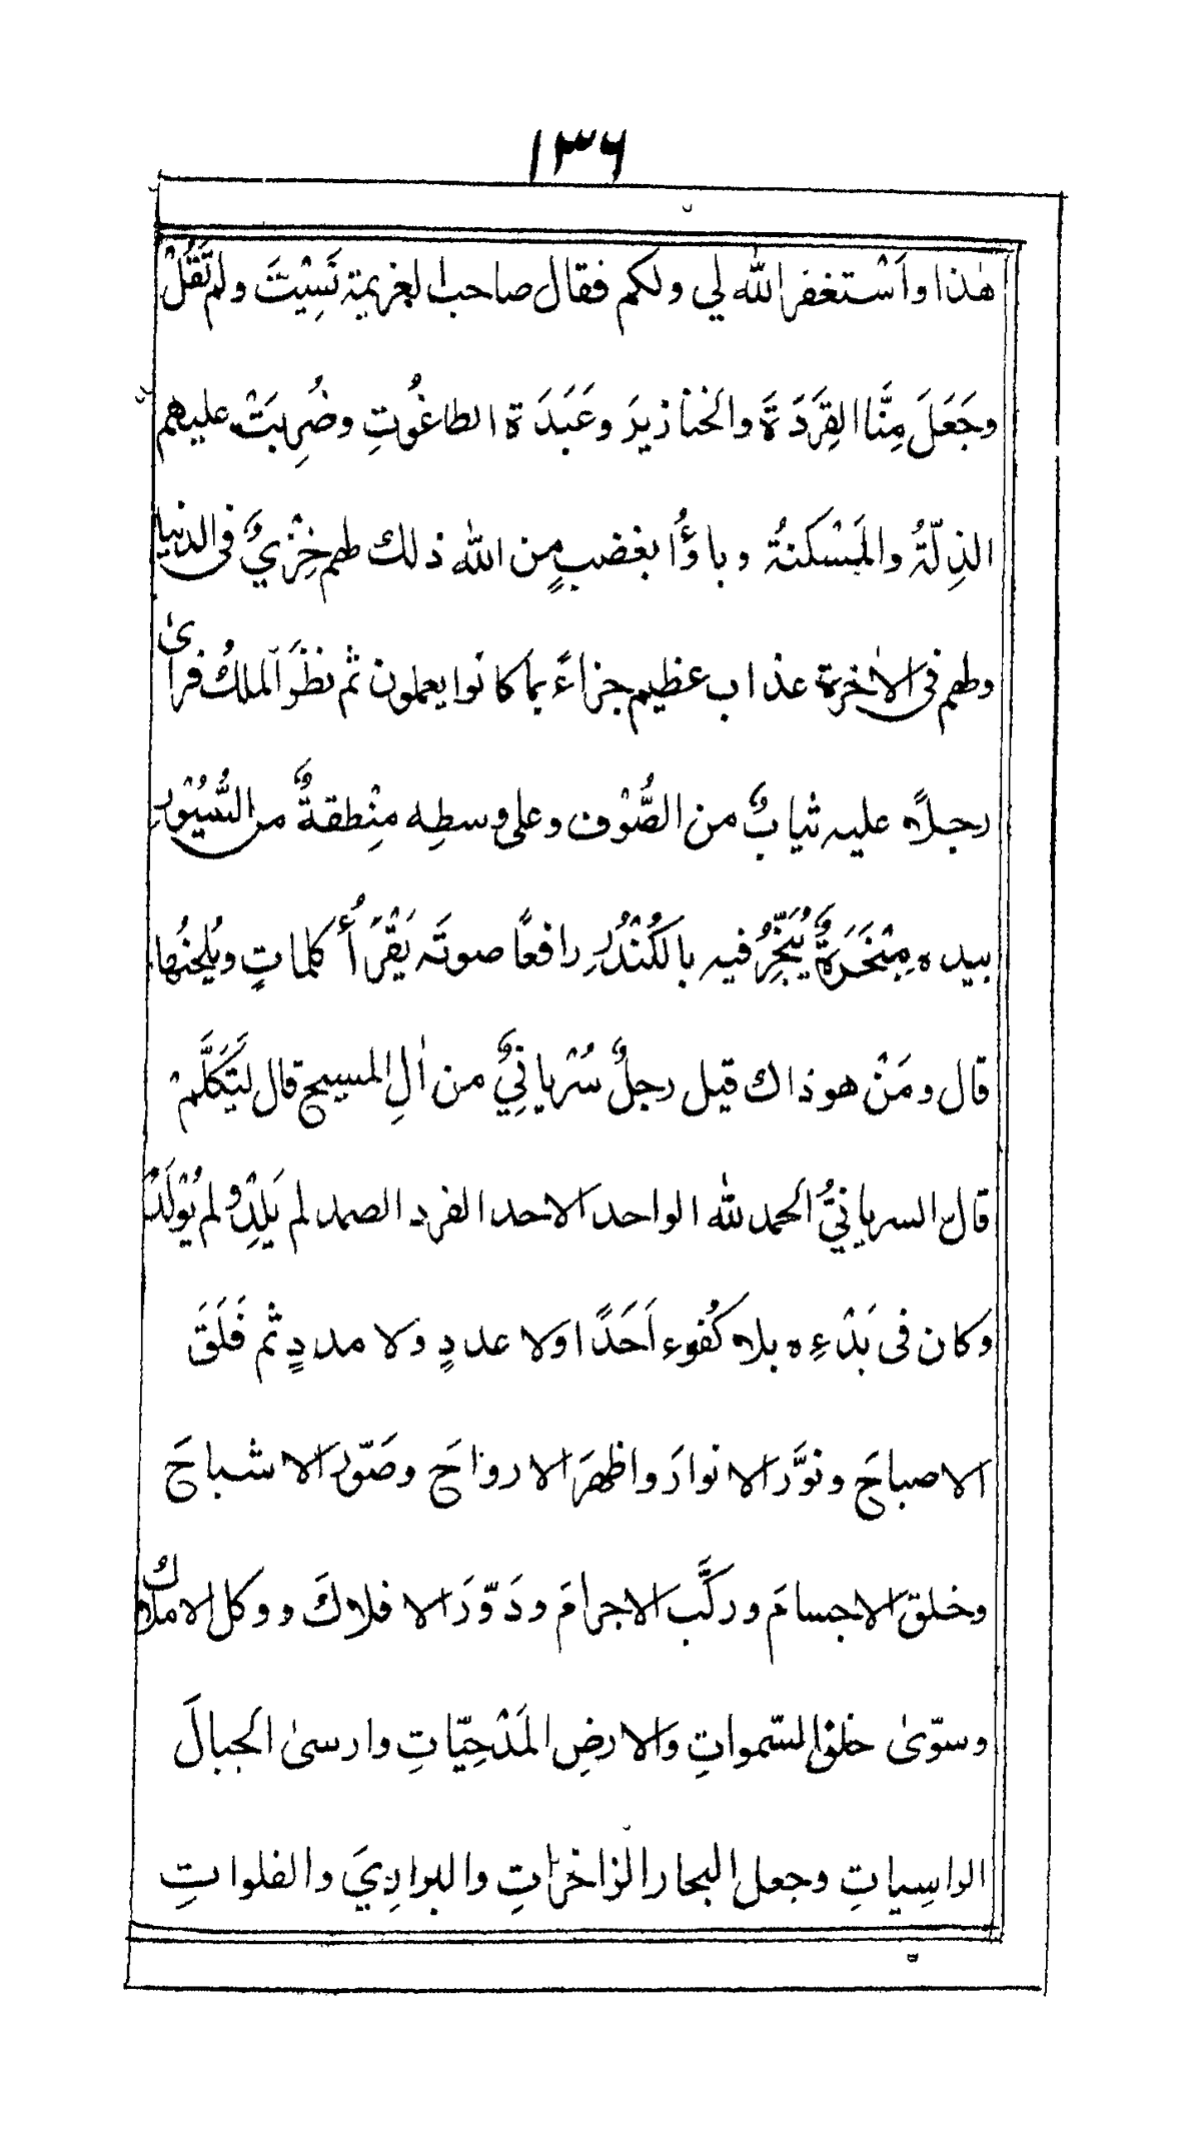 ١٣٦
هٰذا واَسْتغفر الله لي ولكم فقال صاحب العزيمة نَسِيْتَ ولم تَقُلْ
وجَعَلَ مِنَّا القِرَدَةَ والخنازيرَ وعَبَدَة الطاغُوتِ وضُرِبَتْ عليهم
الذِلّةُ والمَسْكنةُ وباؤُا بغضبٍ من الله ذلك لهم خِزْيٌ فى الدنيا
ولهم فى الاٰخرة عذاب عظيم جزاءً بما كانوا يعملون ثم نظَرَ الملكُ فرأىٰ
رجلاً عليه ثيابٌ من الصُّوْف وعلى وسطِه مِنْطقةٌ من السُّيُوْرِ
بيده مِبْخَرَةٌ يُبَخِّرُ فيه بالكُنْدُرِ رافعًا صوتَه يَقْرَأُ كلماتٍ ويُلحنُها
قال ومَنْ هو ذاك قيل رجلٌ سُرْيانِيٌّ من اٰلِ المسيح قال ليَتَكَلَّمْ
قال السريانيُّ الحمد لله الواحد الاحد الفرد الصمد لم يَلِدْ ولم يُوْلَدْ
وكان فى بَدْءِه بلا كُفوء اَحَدًا ولا عددٍ ولا مددٍ ثم فَلَقَ
الاصباحَ ونوَّر الانوارَ واظهرَ الارواحَ وصَوّر الاشباحَ
وخلق الاجسامَ وركَّب الاجرامَ ودَوّرَ الافلاكَ ووكل الاملاك
وسوّىٰ خلق السّمواتِ والارضِ المَدْحِيّاتِ وارسىٰ الجبالَ
الراسِياتِ وجعل البحار الزاخراتِ والبرارِيَ والفلواتِ